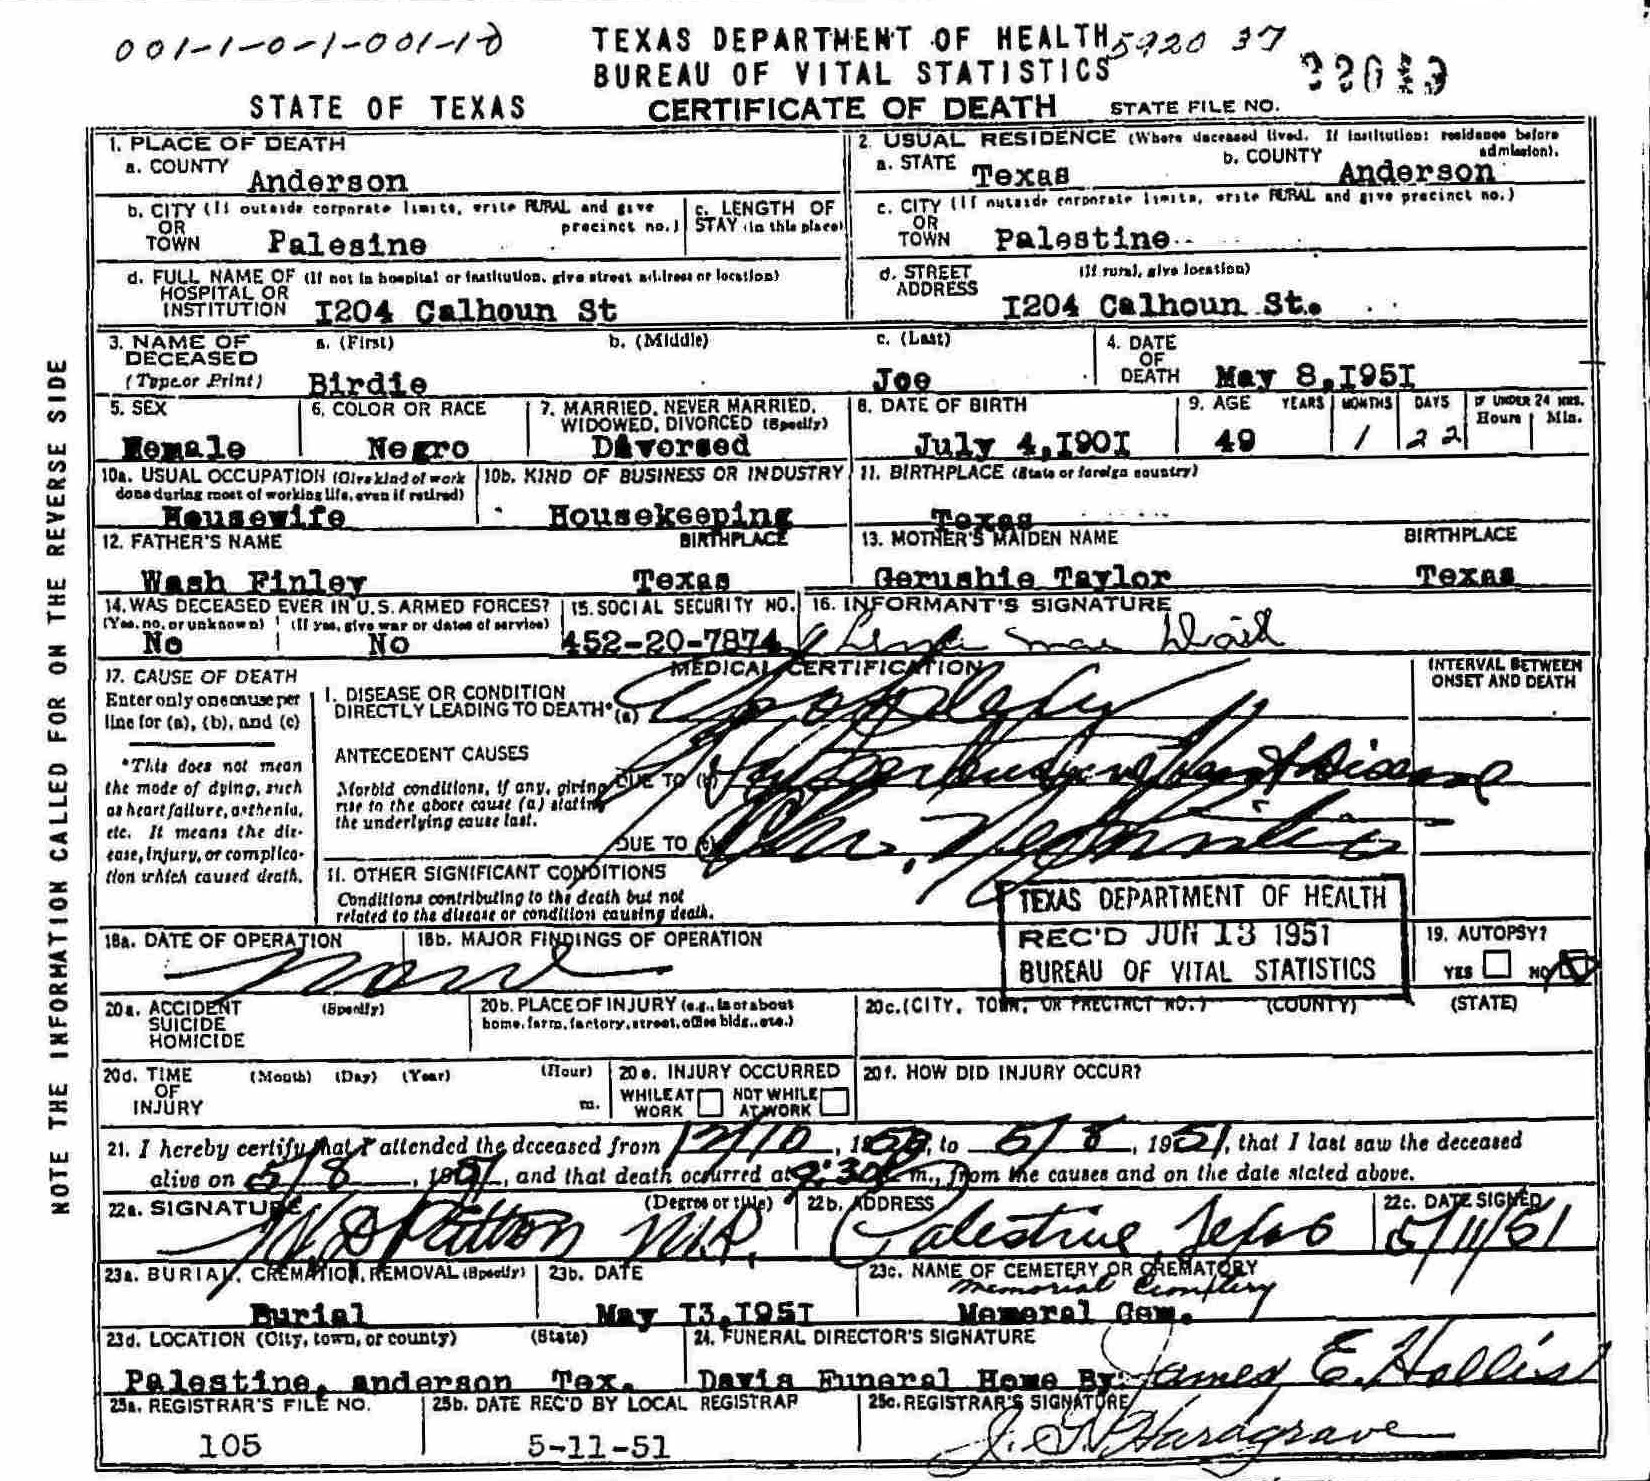 001-1-0-1-001-10
TEXAS DEPARTMENT OF HEALTH 5920 37
BUREAU OF VITAL STATISTICS
STATE OF TEXAS CERTIFICATE OF DEATH STATE FILE NO.
1. PLACE OF DEATH
a. COUNTY Anderson
2. USUAL RESIDENCE (Where deceased lived. If institution: residence before admission).
a. STATE Texas b. COUNTY Anderson
b. CITY (If outside corporate limits, write RURAL and give precinct no.) OR TOWN Palesine
c. LENGTH OF STAY (in this place)
c. CITY (If outside corporate limits, write RURAL and give precinct no.) OR TOWN Palestine
d. FULL NAME OF HOSPITAL OR INSTITUTION (If not in hospital or institution, give street address or location) I204 Calhoun St
d. STREET ADDRESS (If rural, give location) I204 Calhoun St.
3. NAME OF DECEASED (Type or Print) a. (First) Birdie b. (Middle) c. (Last) Joe
4. DATE OF DEATH May 8,I95I
5. SEX Female
6. COLOR OR RACE Negro
7. MARRIED, NEVER MARRIED, WIDOWED, DIVORCED (Specify) Divorsed
8. DATE OF BIRTH July 4,I90I
9. AGE YEARS 49 MONTHS 1 DAYS 22 IF UNDER 24 HRS. Hours Min.
10a. USUAL OCCUPATION (Give kind of work done during most of working life, even if retired) Housewife
10b. KIND OF BUSINESS OR INDUSTRY Housekeeping
11. BIRTHPLACE (State or foreign country) Texas
12. FATHER'S NAME Wash Finley BIRTHPLACE Texas
13. MOTHER'S MAIDEN NAME Gerushie Taylor BIRTHPLACE Texas
14. WAS DECEASED EVER IN U.S. ARMED FORCES? (Yes, no, or unknown) No (If yes, give war or dates of service) No
15. SOCIAL SECURITY NO. 452-20-7874
16. INFORMANT'S SIGNATURE
MEDICAL CERTIFICATION
INTERVAL BETWEEN ONSET AND DEATH
17. CAUSE OF DEATH
Enter only one cause per line for (a), (b), and (c)
*This does not mean the mode of dying, such as heart failure, asthenia, etc. It means the disease, injury, or complication which caused death.
I. DISEASE OR CONDITION DIRECTLY LEADING TO DEATH* (a) Apoplexy
ANTECEDENT CAUSES
Morbid conditions, if any, giving rise to the above cause (a) stating the underlying cause last.
DUE TO (b) Hypertensive Heart Disease
DUE TO (c) Chr. Nephritis
II. OTHER SIGNIFICANT CONDITIONS
Conditions contributing to the death but not related to the disease or condition causing death.
TEXAS DEPARTMENT OF HEALTH
REC'D JUN 13 1951
BUREAU OF VITAL STATISTICS
18a. DATE OF OPERATION None
18b. MAJOR FINDINGS OF OPERATION
19. AUTOPSY? YES NO
20a. ACCIDENT SUICIDE HOMICIDE (Specify)
20b. PLACE OF INJURY (e.g., in or about home, farm, factory, street, office bldg., etc.)
20c. (CITY, TOWN, OR PRECINCT NO.) (COUNTY) (STATE)
20d. TIME OF INJURY (Month) (Day) (Year) (Hour) m.
20e. INJURY OCCURRED WHILE AT WORK NOT WHILE AT WORK
20f. HOW DID INJURY OCCUR?
21. I hereby certify that I attended the deceased from 12/10, 1950, to 5/8, 1951, that I last saw the deceased
alive on 5/8, 1951, and that death occurred at m., from the causes and on the date stated above.
22a. SIGNATURE (Degree or title) M.D.
22b. ADDRESS Palestine, Texas
22c. DATE SIGNED 5/11/51
23a. BURIAL, CREMATION, REMOVAL (Specify) Burial
23b. DATE May I3,I95I
23c. NAME OF CEMETERY OR CREMATORY
Memorial Cemetery
Memeral Cem.
23d. LOCATION (City, town, or county) (State) Palestine, anderson Tex.
24. FUNERAL DIRECTOR'S SIGNATURE Davis Funeral Home By James E. Hollis
25a. REGISTRAR'S FILE NO. 105
25b. DATE REC'D BY LOCAL REGISTRAR 5-11-51
25c. REGISTRAR'S SIGNATURE J. G. Hardgrave
NOTE THE INFORMATION CALLED FOR ON THE REVERSE SIDE